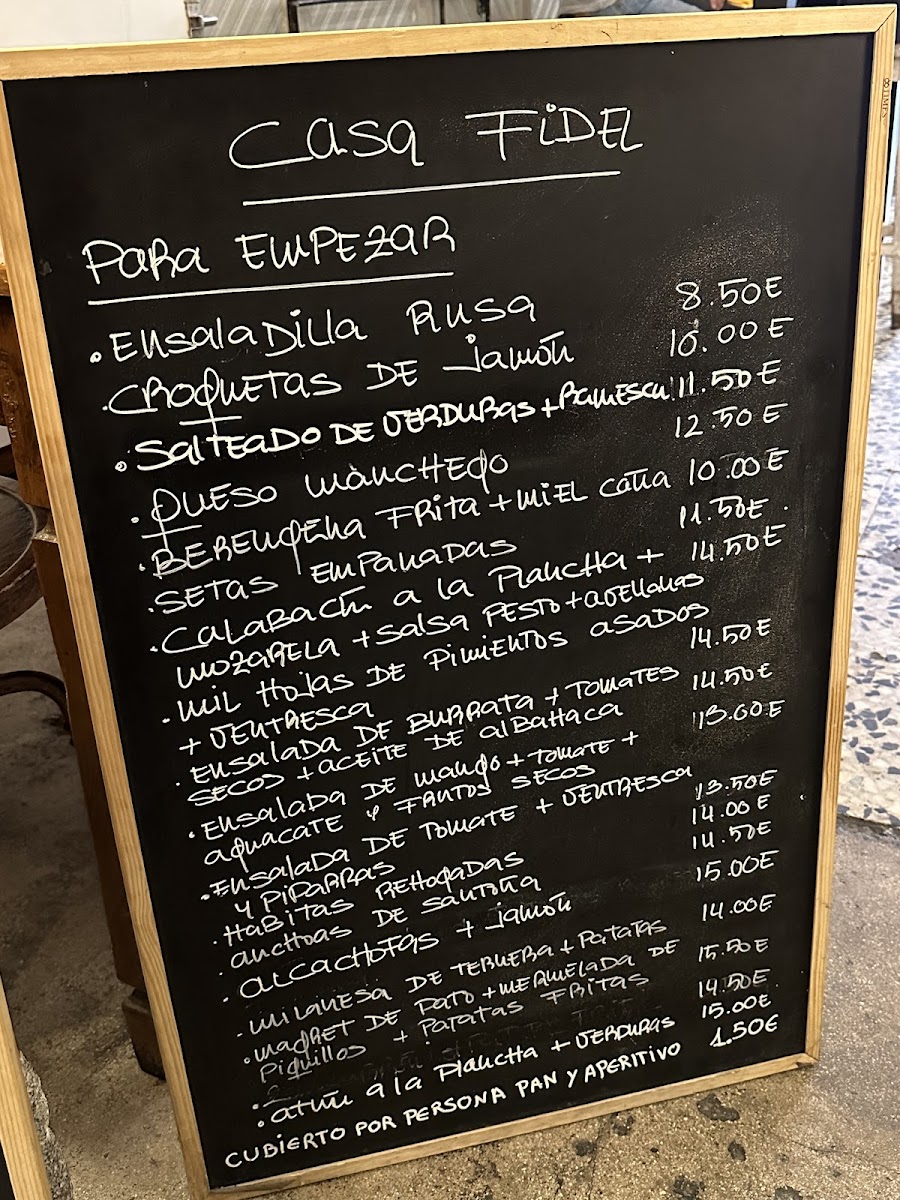 Casa FiDEL
PARA EMPEZAR
• Ensaladilla Rusa 8.50€
• CROQUETAS DE jamón 10.00€
• SALTEADO DE VERDURAS + RAMESCU 11.50€
• QUESO MANCHEGO 12.50€
• BERENGENA FRITA + MIEL caña 10.00€
• SETAS EMPANADAS 11.50€
• CALABACIN a la PLANCHA + 14.50€
MOZARELA + SALSA PESTO + avellanas
• MIL HOJAS DE PIMIENTOS ASADOS 14.50€
+ VENTRESCA
• ENSALADA DE BURRATA + TOMATES 14.50€
SECOS + ACEITE DE albahaca
• ENSALADA DE mango + TOMATE + 13.00€
aguacate y FRUTOS SECOS
• ENSALADA DE TOMATE + VENTRESCA 13.50€
y PIPARRAS
• HABITAS REHOGADAS 14.00€
• anchoas DE SANTOÑA 14.50€
• alcachofas + jamón 15.00€
• MILANESA DE TERNERA + PATATAS 14.00€
• MAGRET DE PATO + MERMELADA DE 15.50€
PIQUILLOS + PATATAS FRITAS
14.50€
• atún a la PLANCHA + VERDURAS 15.00€
CUBIERTO POR PERSONA PAN Y APERITIVO 1.50€